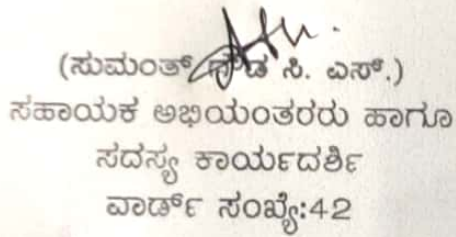 (ಸುಮಂತ್ ಗೌಡ ಸಿ. ಎಸ್.)
ಸಹಾಯಕ ಅಭಿಯಂತರರು ಹಾಗೂ
ಸದಸ್ಯ ಕಾರ್ಯದರ್ಶಿ
ವಾರ್ಡ್ ಸಂಖ್ಯೆ:42